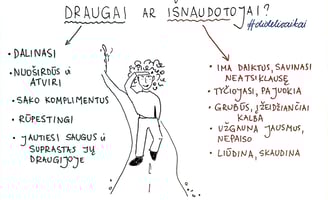 DRAUGAI AR IŠNAUDOTOJAI?
#dideliovaikai
• DALINASI
• NUOŠIRDŪS ir
ATVIRI
• SAKO KOMPLIMENTUS
• RŪPESTINGI
• JAUTIESI SAUGUS ir
SUPRASTAS JŲ
DRAUGIJOJE
• IMA DAIKTUS, SAVINASI
NEATSIKLAUSĘ
• TYČIOJASI, PAJUOKIA
• GRUBŪS, ĮŽEIDŽIANČIAI
KALBA
• UŽGAUNA JAUSMUS,
NEPAISO
• LIŪDINA, SKAUDINA